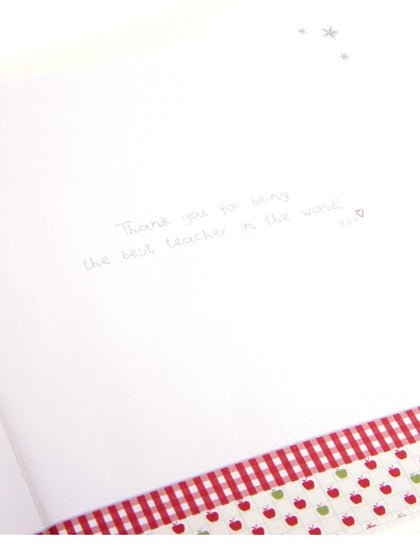 Thank you for being
the best teacher in the world!
xxx♡